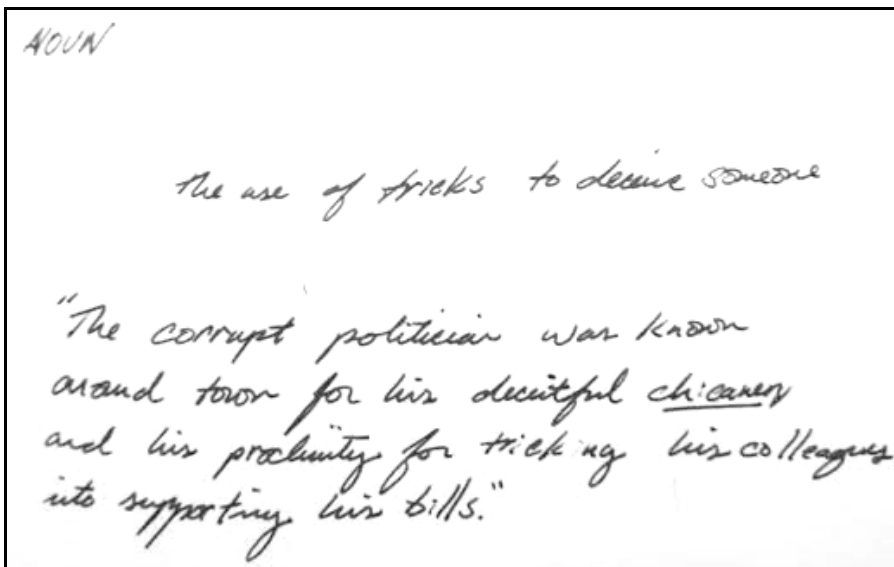 NOUN
the use of tricks to deceive someone
"The corrupt politician was known
around town for his deceitful chicanery
and his proclivity for tricking his colleagues
into supporting his bills."